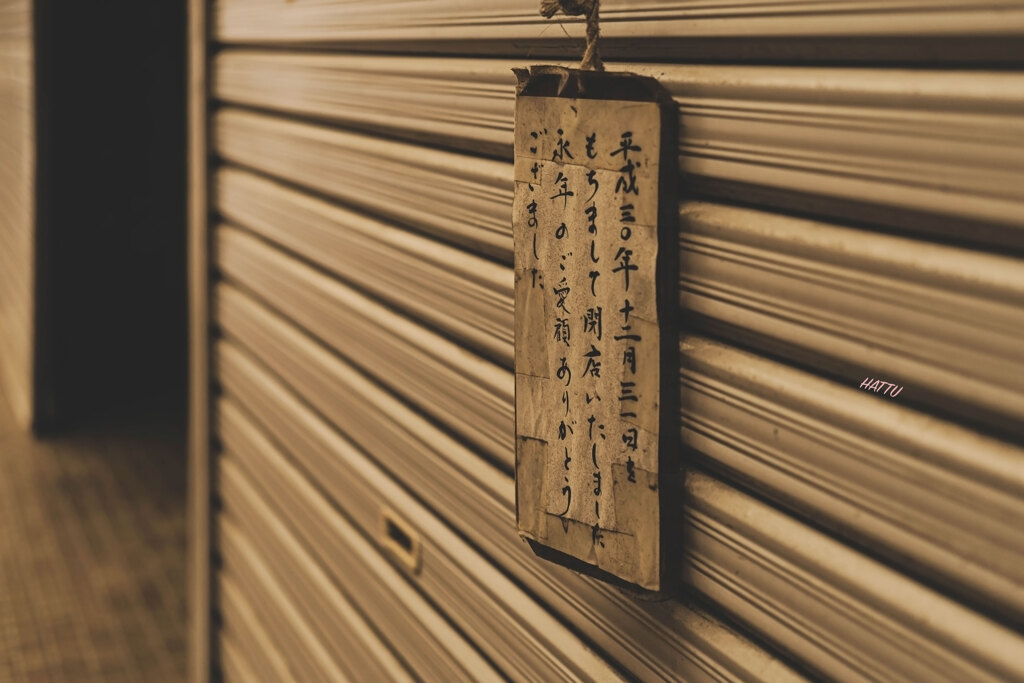 平成三〇年十二月三一日を
もちまして閉店いたしました
永年のご愛顧ありがとう
ございました
HATTU